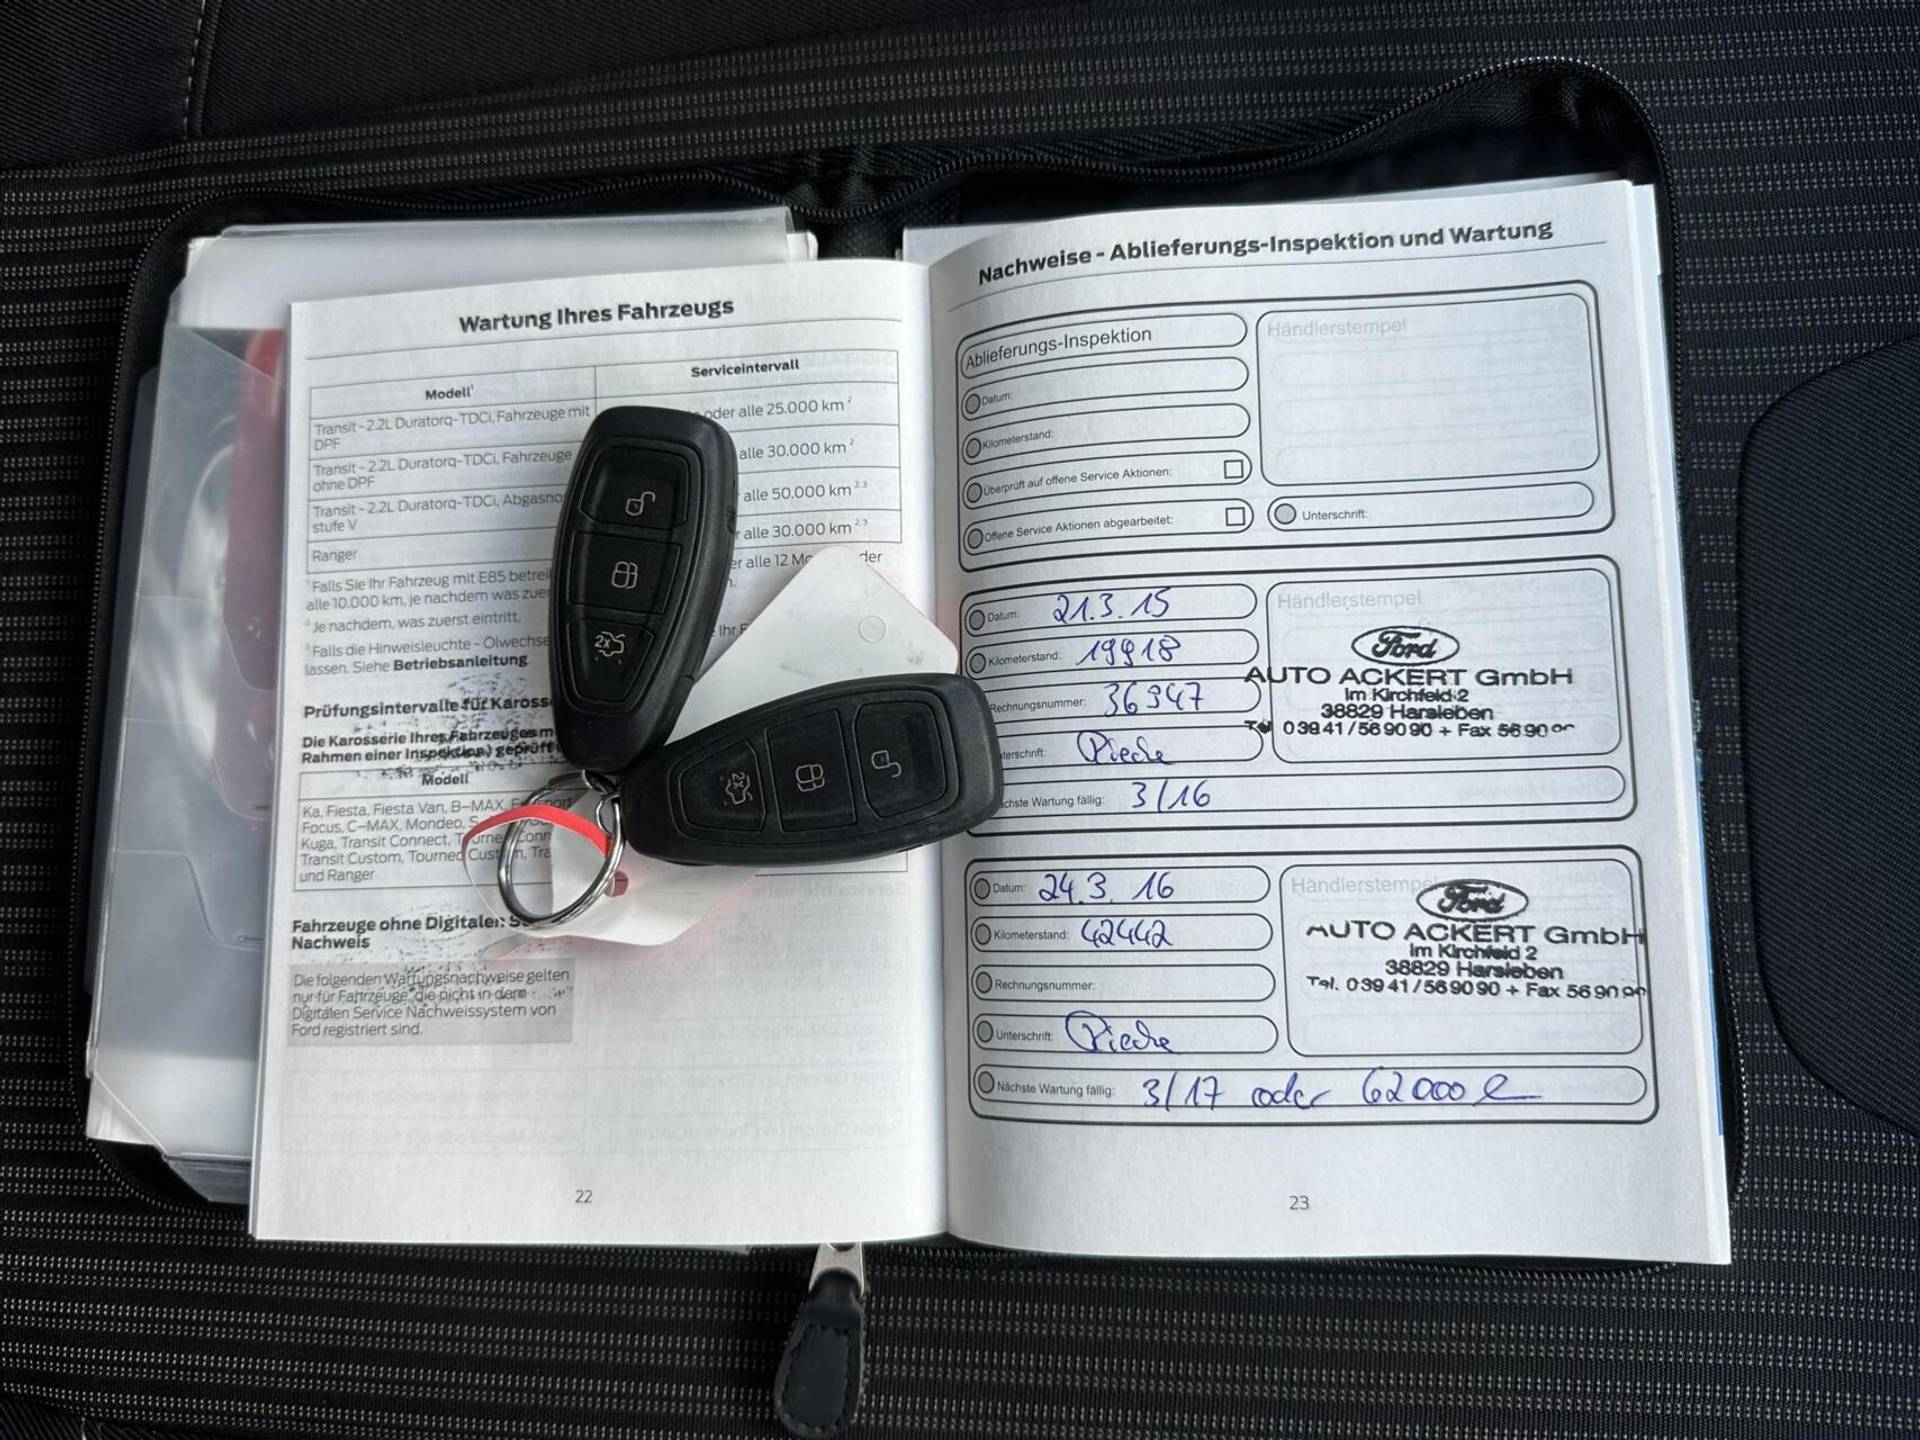 Wartung Ihres Fahrzeugs
Modell¹
Serviceintervall
Transit - 2.2L Duratorq-TDCi, Fahrzeuge mit
DPF
oder alle 25.000 km ²
Transit - 2.2L Duratorq-TDCi, Fahrzeuge
ohne DPF
alle 30.000 km ²
Transit - 2.2L Duratorq-TDCi,
stufe V
alle 50.000 km ²·³
Ranger
alle 30.000 km ²·³
¹ Falls Sie Ihr Fahrzeug mit E85
alle 12
alle 10.000 km, je nachdem was
² Je nachdem, was zuerst eintritt.
³ Falls die Hinweisleuchte -
lassen. Siehe Betriebsanleitung
Prüfungsintervalle für
Die Karosserie Ihres Fahrzeuges
Rahmen einer Inspektion) geprüft
Modell
Ka, Fiesta, Fiesta Van, B-MAX,
Focus, C-MAX, Mondeo,
Kuga, Transit Connect,
Transit Custom,
und Ranger
Fahrzeuge ohne Digitalen
Nachweis
Die folgenden Wartungsnachweise gelten
nur für Fahrzeuge, die nicht in dem
Digitalen Service Nachweissystem von
Ford registriert sind.
22
2x
2x
Nachweise - Ablieferungs-Inspektion und Wartung
Ablieferungs-Inspektion
Händlerstempel
Datum:
Kilometerstand:
Überprüft auf offene Service Aktionen:
Offene Service Aktionen abgearbeitet:
Unterschrift:
Datum: 21.3.15
Händlerstempel
Kilometerstand: 19918
Rechnungsnummer: 36347
Ford
AUTO ACKERT GmbH
Im Kirchfeld 2
38829 Harsleben
Tel. 03941/569090 + Fax 569090
Pieche
3/16
Datum: 24.3.16
Händlerstempel
Kilometerstand: 42442
Rechnungsnummer:
Ford
AUTO ACKERT GmbH
Im Kirchfeld 2
38829 Harsleben
Tel. 03941/569090 + Fax 569090
Unterschrift: Pieche
Nächste Wartung fällig: 3/17 oder 62000
23